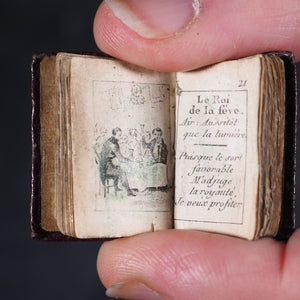 21
Le Roi
de la fève.
Air: Aussitôt
que la lumière.
Puisque le sort
favorable
M'adjuge
la royauté,
Je veux profiter